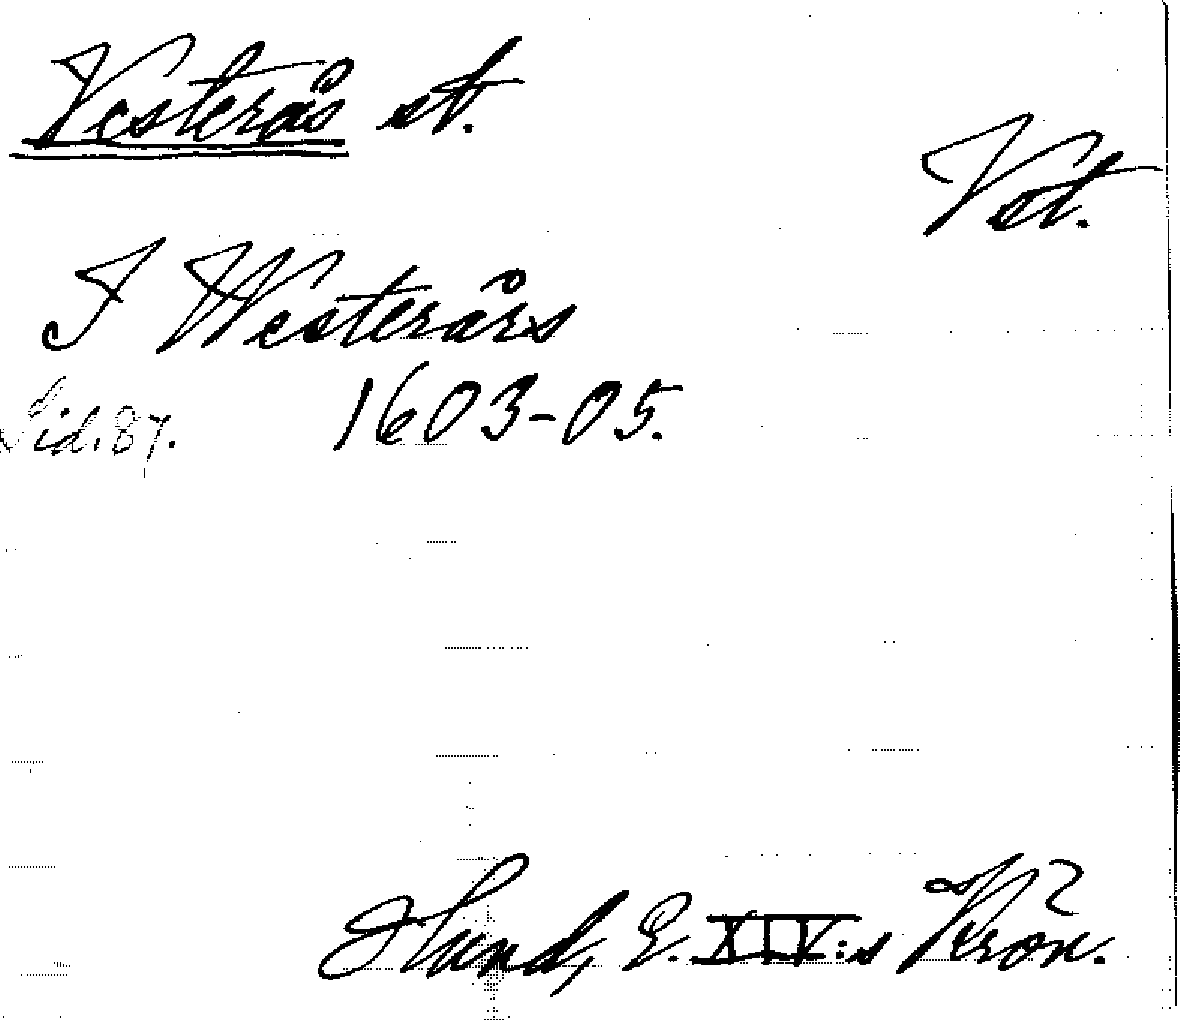 Vesterås st.
Vst.
I Westerårs
Sid. 87. 1603-05.
Hund, E. XIV:s Krön.